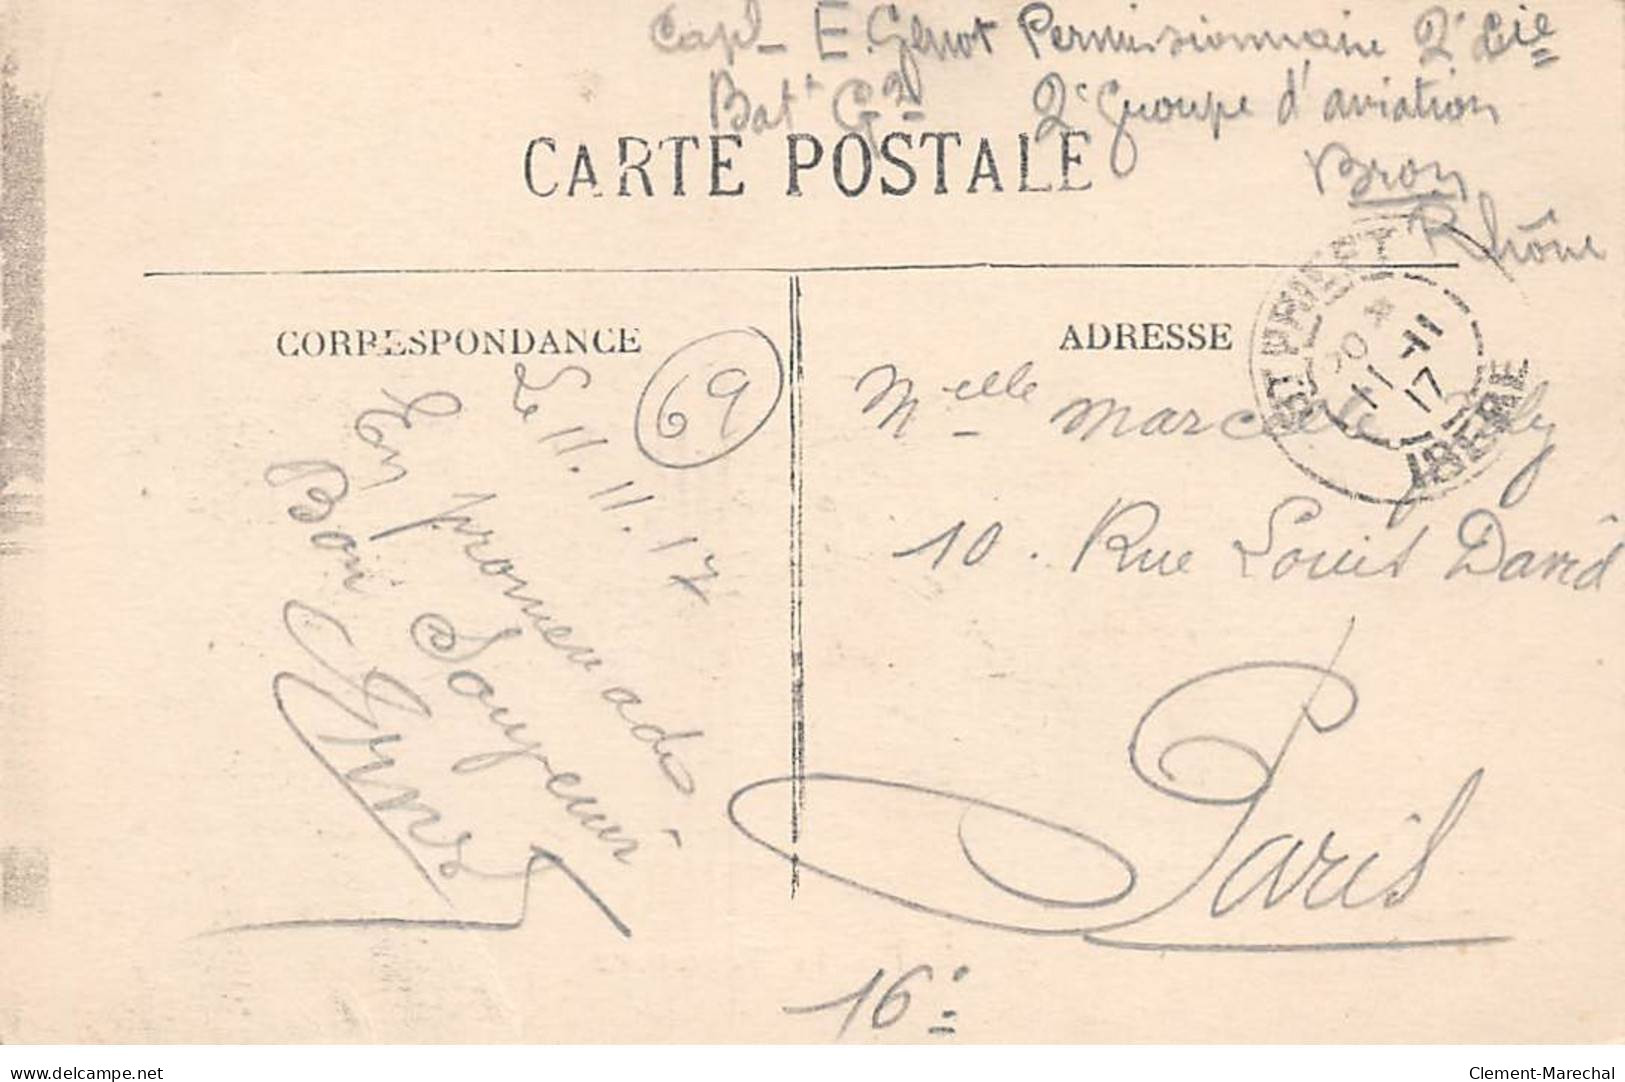 Capl - E. Genot Permissionnaire 2e Cie
Batt Gal 2e Groupe d'aviation
Bron
Rhône
CARTE POSTALE
CORRESPONDANCE
ADRESSE
ST PRIEST
ISERE
20
11 - 11
17
69
Le 11.11.17
En promenade
Bon Souvenir
Melle Marcelle
10. Rue Louis David
Paris
16e
delcampe.net
Clement-Marechal